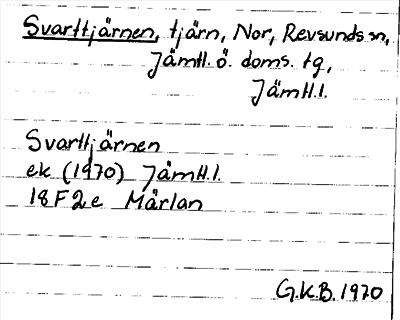 Svarttjärnen, tjärn, Nor, Revsunds sn,
Jämtl. ö. doms. tg,
Jämtl.l.
Svarttjärnen
ek (1970) Jämtl.l.
18F2e Mårlan
G.K.B. 1970